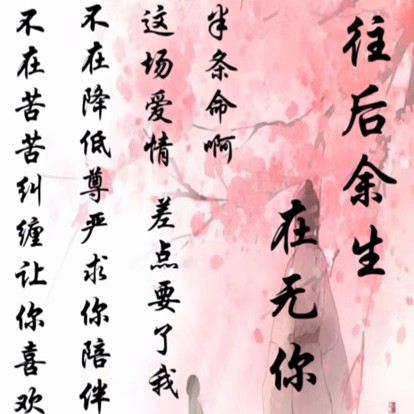 往后余生
在无你
半条命啊
这场爱情 差点要了我
不在降低尊严求你陪伴
不在苦苦纠缠让你喜欢